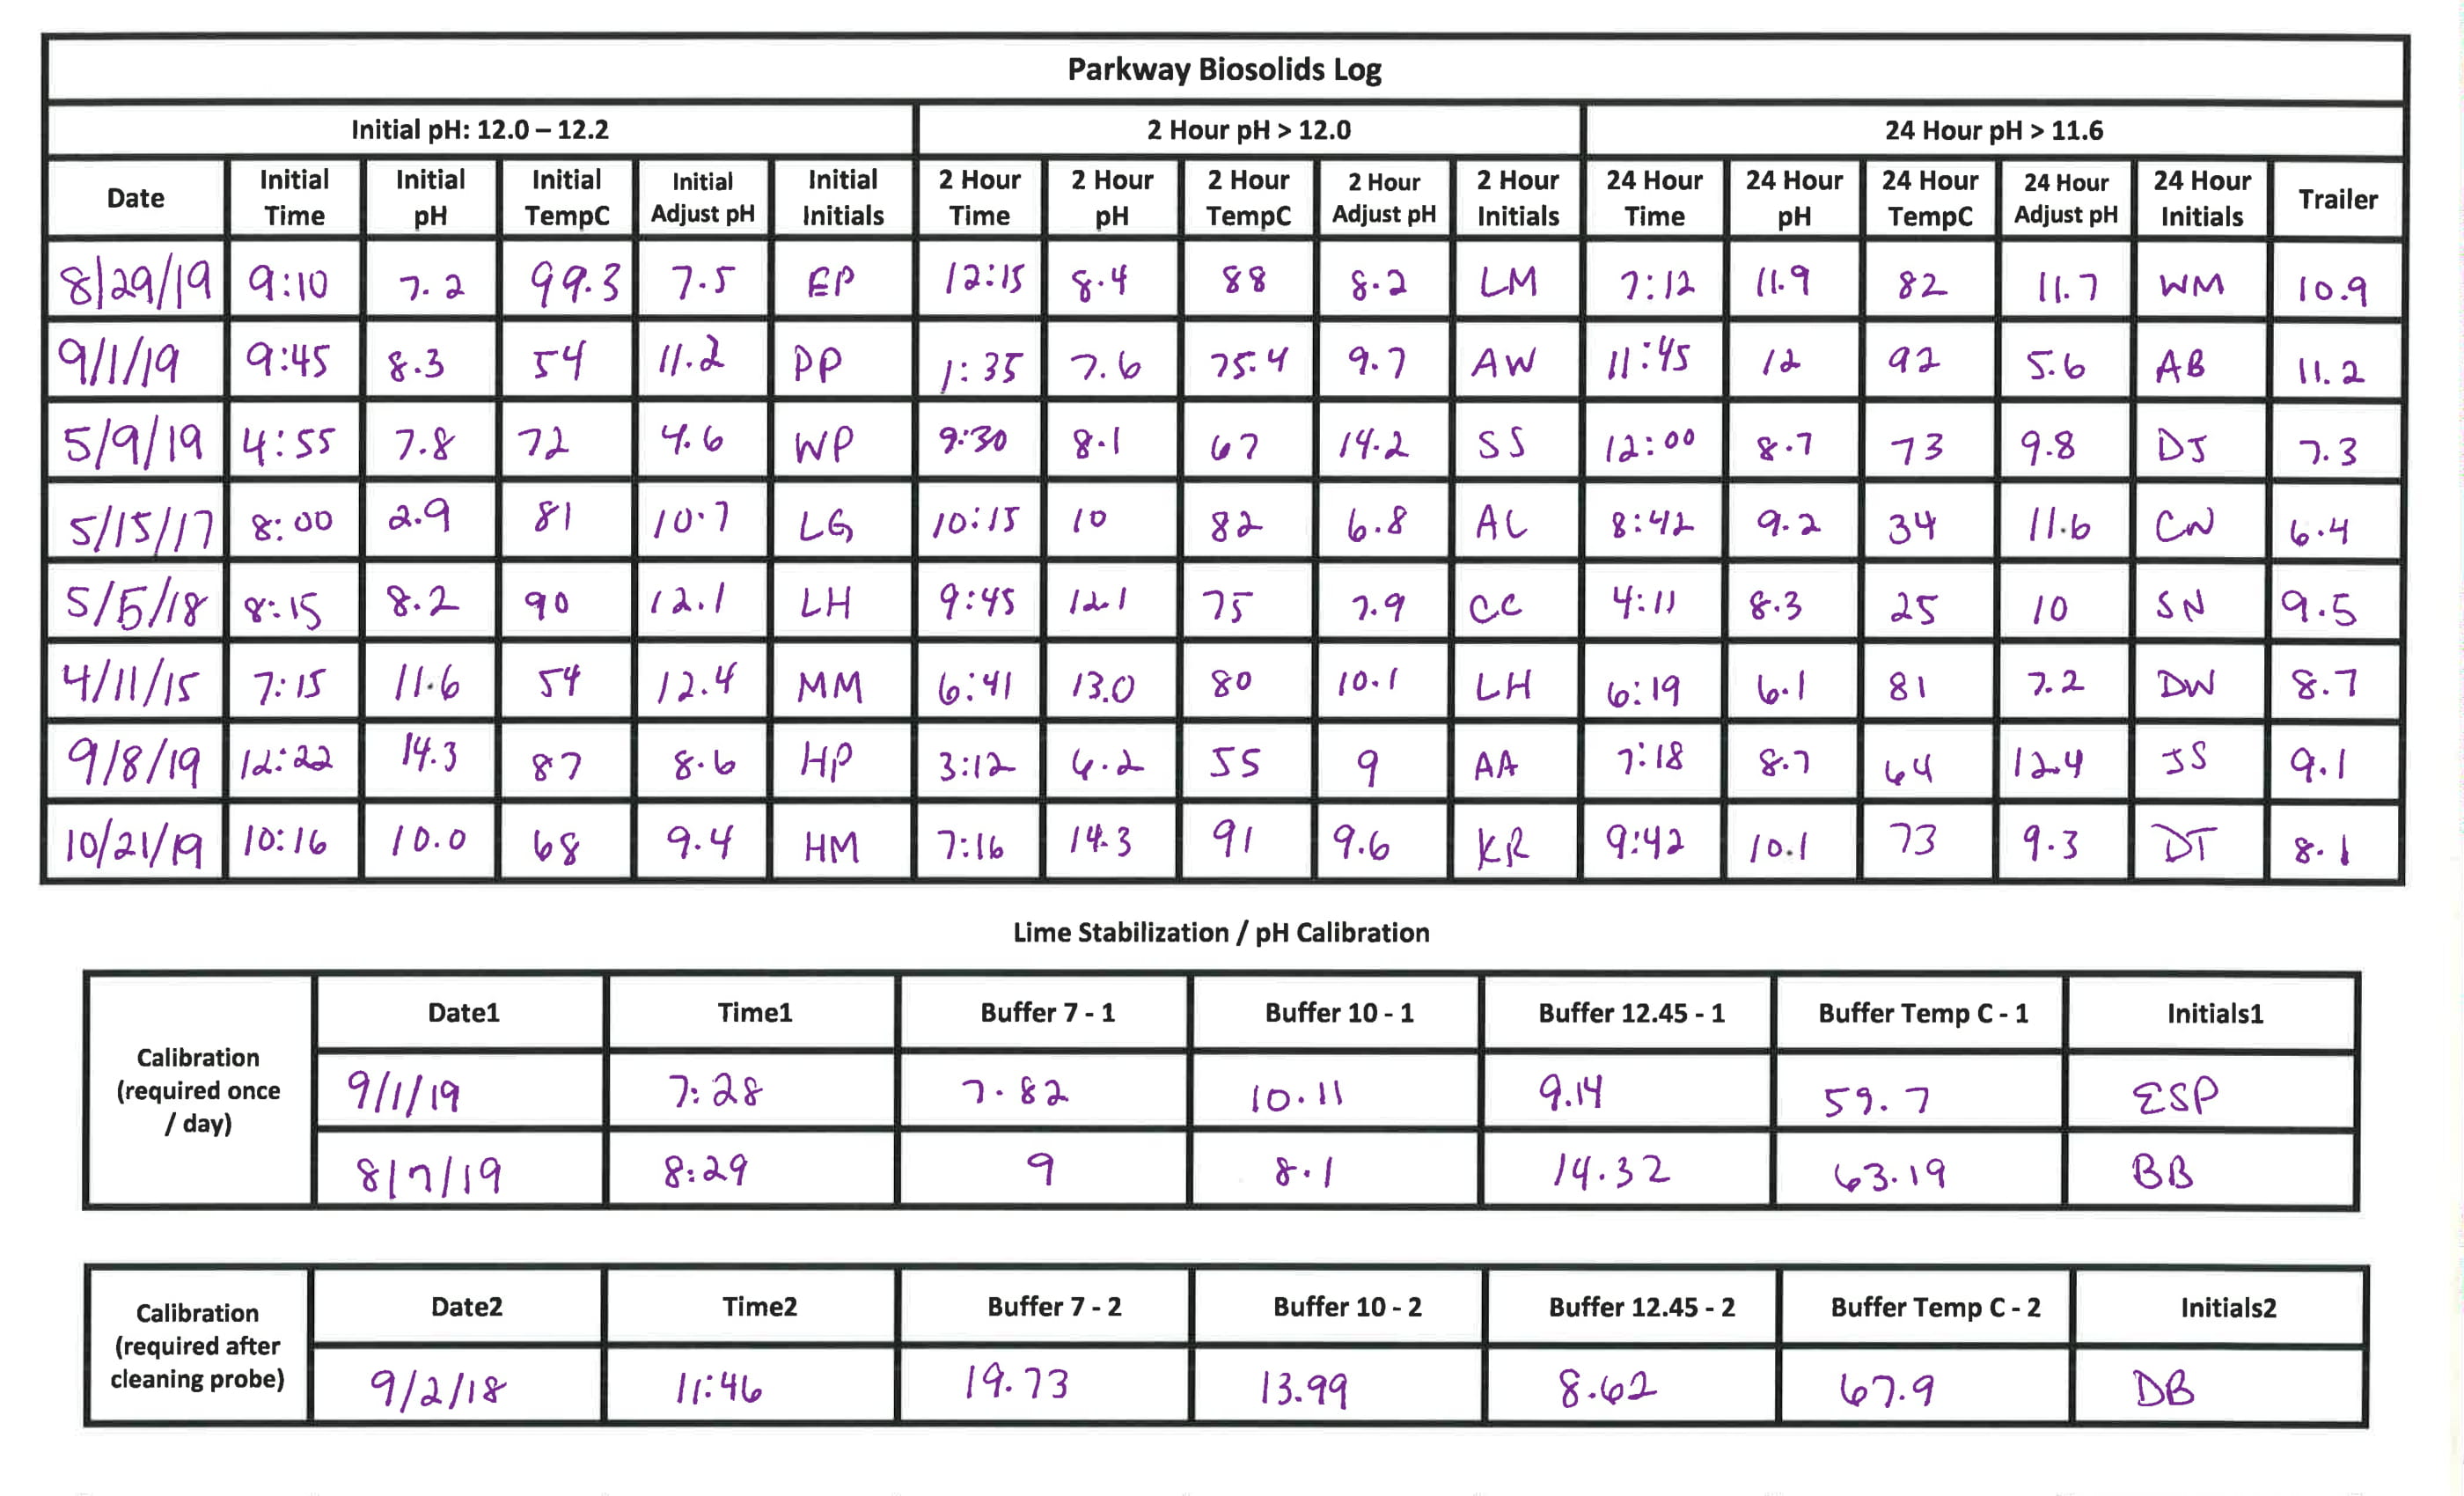 Parkway Biosolids Log
Initial pH: 12.0 – 12.2 2 Hour pH > 12.0 24 Hour pH > 11.6
Date Initial Time Initial pH Initial TempC Initial Adjust pH Initial Initials 2 Hour Time 2 Hour pH 2 Hour TempC 2 Hour Adjust pH 2 Hour Initials 24 Hour Time 24 Hour pH 24 Hour TempC 24 Hour Adjust pH 24 Hour Initials Trailer
8/29/19 9:10 7.2 99.3 7.5 EP 12:15 8.4 88 8.2 LM 7:12 11.9 82 11.7 WM 10.9
9/1/19 9:45 8.3 54 11.2 PP 1:35 7.6 75.4 9.7 AW 11:45 12 92 5.6 AB 11.2
5/9/19 4:55 7.8 72 4.6 WP 9:30 8.1 67 14.2 SS 12:00 8.7 73 9.8 DJ 7.3
5/15/17 8:00 2.9 81 10.7 LG 10:15 10 82 6.8 AL 8:42 9.2 34 11.6 CN 6.4
5/5/18 8:15 8.2 90 12.1 LH 9:45 12.1 75 7.9 CC 4:11 8.3 25 10 SN 9.5
4/11/15 7:15 11.6 54 12.4 MM 6:41 13.0 80 10.1 LH 6:19 6.1 81 7.2 DW 8.7
9/8/19 12:22 14.3 87 8.6 HP 3:12 6.2 55 9 AA 7:18 8.7 64 12.4 JS 9.1
10/21/19 10:16 10.0 68 9.4 HM 7:16 14.3 91 9.6 KR 9:42 10.1 73 9.3 DT 8.1
Lime Stabilization / pH Calibration
Calibration (required once / day) Date1 Time1 Buffer 7 - 1 Buffer 10 - 1 Buffer 12.45 - 1 Buffer Temp C - 1 Initials1
9/1/19 7:28 7.82 10.11 9.14 59.7 ESP
8/7/19 8:29 9 8.1 14.32 63.19 BB
Calibration (required after cleaning probe) Date2 Time2 Buffer 7 - 2 Buffer 10 - 2 Buffer 12.45 - 2 Buffer Temp C - 2 Initials2
9/2/18 11:46 19.73 13.99 8.62 67.9 DB